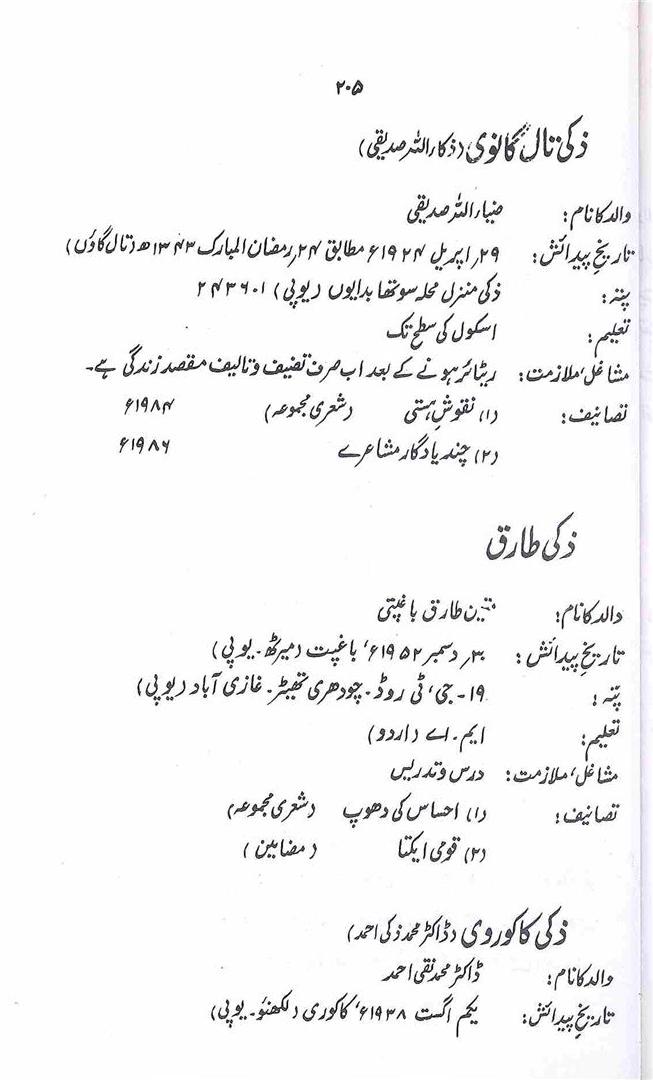 ۲۰۵
ذکی تال گانوی (ذکاء اللہ صدیقی)
والد کا نام: ضیاء اللہ صدیقی
تاریخِ پیدائش: ۲۹؍ اپریل ۱۹۲۴ء مطابق ۲۴؍ رمضان المبارک ۱۳۴۳ھ (تال گاؤں)
پتہ: ذکی منزل محلہ سوتھا بدایوں (یوپی) ۲۴۳۶۰۱
تعلیم: اسکول کی سطح تک
مشاغل، ملازمت: ریٹائر ہونے کے بعد اب صرف تصنیف و تالیف مقصد زندگی ہے۔
تصانیف: (۱) نقوشِ ہستی (شعری مجموعہ) ۱۹۸۴ء
(۲) چند یادگار مشاعرے ۱۹۸۶ء
ذکی طارق
والد کا نام: متین طارق باغپتی
تاریخِ پیدائش: ۳۰؍ دسمبر ۱۹۵۲ء، باغپت (میرٹھ۔ یوپی)
پتہ: ۱۹۔ جی، ٹی روڈ۔ چودھری تھیٹر۔ غازی آباد (یوپی)
تعلیم: ایم۔ اے (اردو)
مشاغل، ملازمت: درس و تدریس
تصانیف: (۱) احساس کی دھوپ (شعری مجموعہ)
(۲) قومی ایکتا (مضامین)
ذکی کاکوروی (ڈاکٹر محمد ذکی احمد)
والد کا نام: ڈاکٹر محمد نقی احمد
تاریخِ پیدائش: یکم اگست ۱۹۳۸ء، کاکوری (لکھنؤ۔ یوپی)